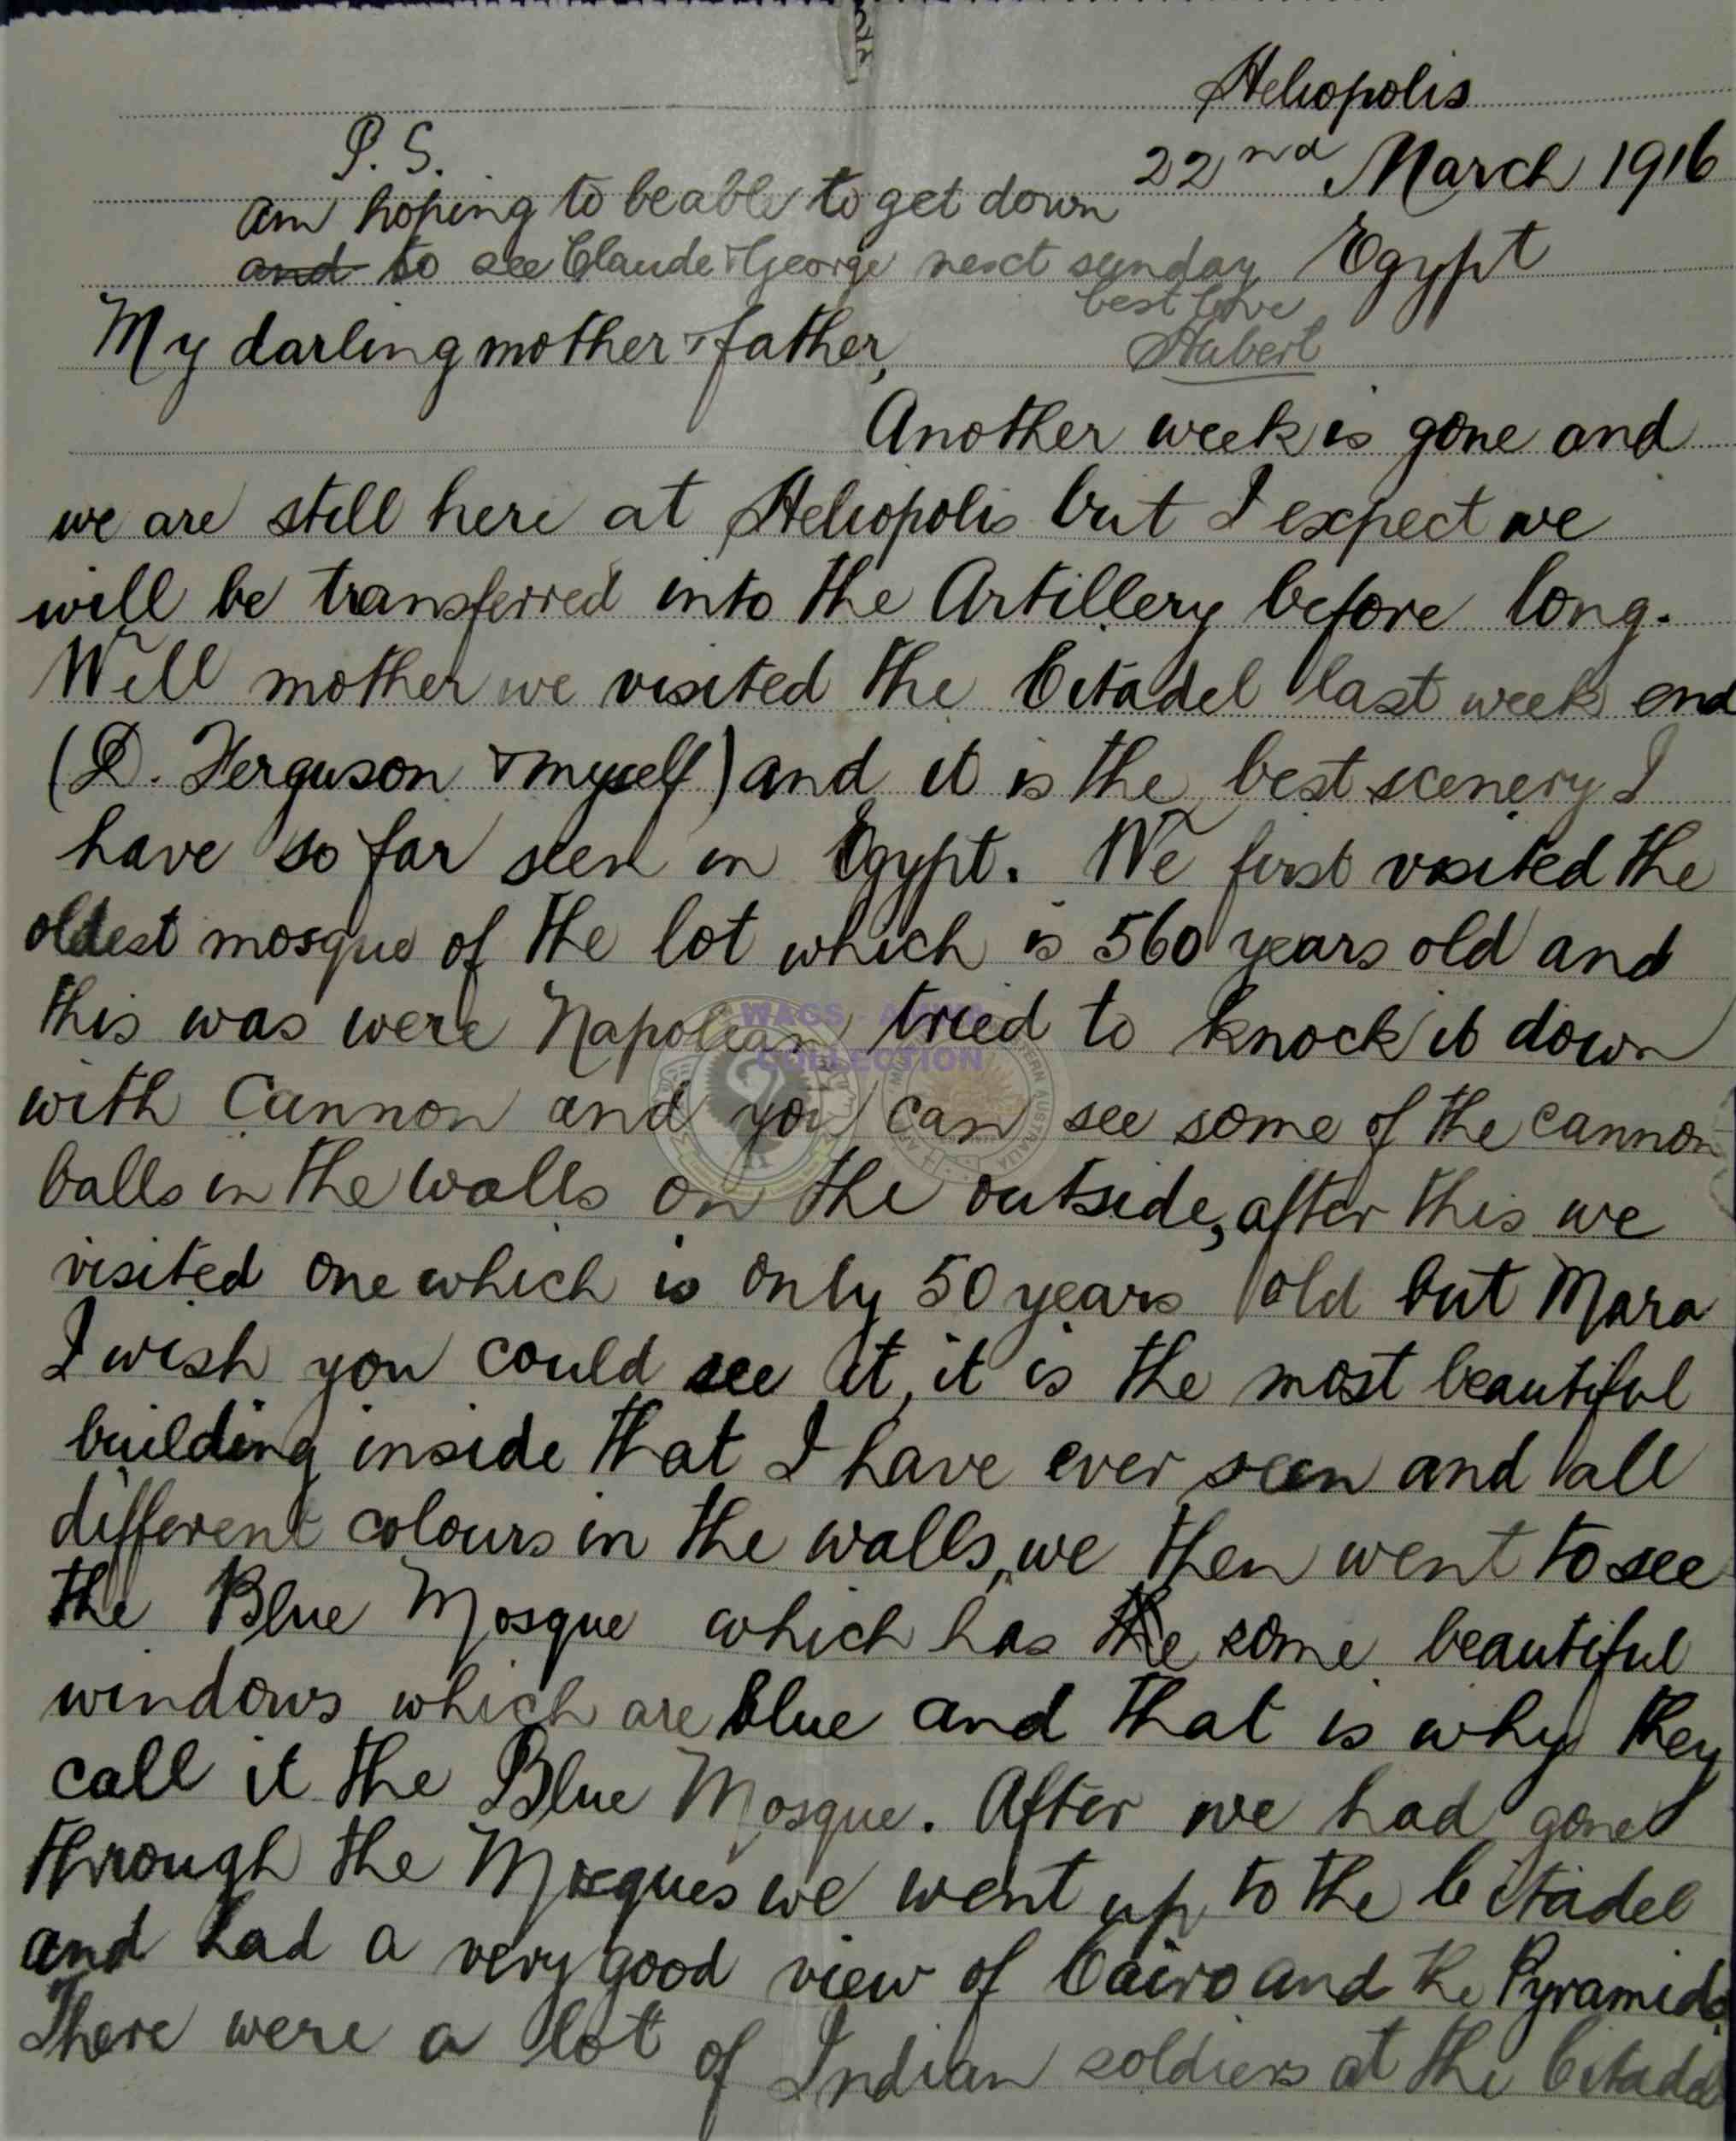 Heliopolis
22nd March 1916
Egypt
P.S.
am hoping to be able to get down
and to see Claude & George next sunday
best love
Hubert
My darling mother & father,
Another week is gone and
we are still here at Heliopolis but I expect we
will be transferred into the Artillery before long.
Well mother we visited the Citadel last week end
(D. Ferguson & myself) and it is the best scenery I
have so far seen in Egypt. We first visited the
oldest mosque of the lot which is 560 years old and
this was were Napolean tried to knock it down
with Cannon and you can see some of the cannon
balls in the walls on the outside, after this we
visited one which is only 50 years old but Mara
I wish you could see it, it is the most beautiful
building inside that I have ever seen and all
different colours in the walls, we then went to see
the Blue Mosque which has the some beautiful
windows which are blue and that is why they
call it the Blue Mosque. After we had gone
through the Mosques we went up to the Citadel
and had a very good view of Cairo and the Pyramids.
There were a lot of Indian soldiers at the Citadel
WAGS - AMWA
COLLECTION